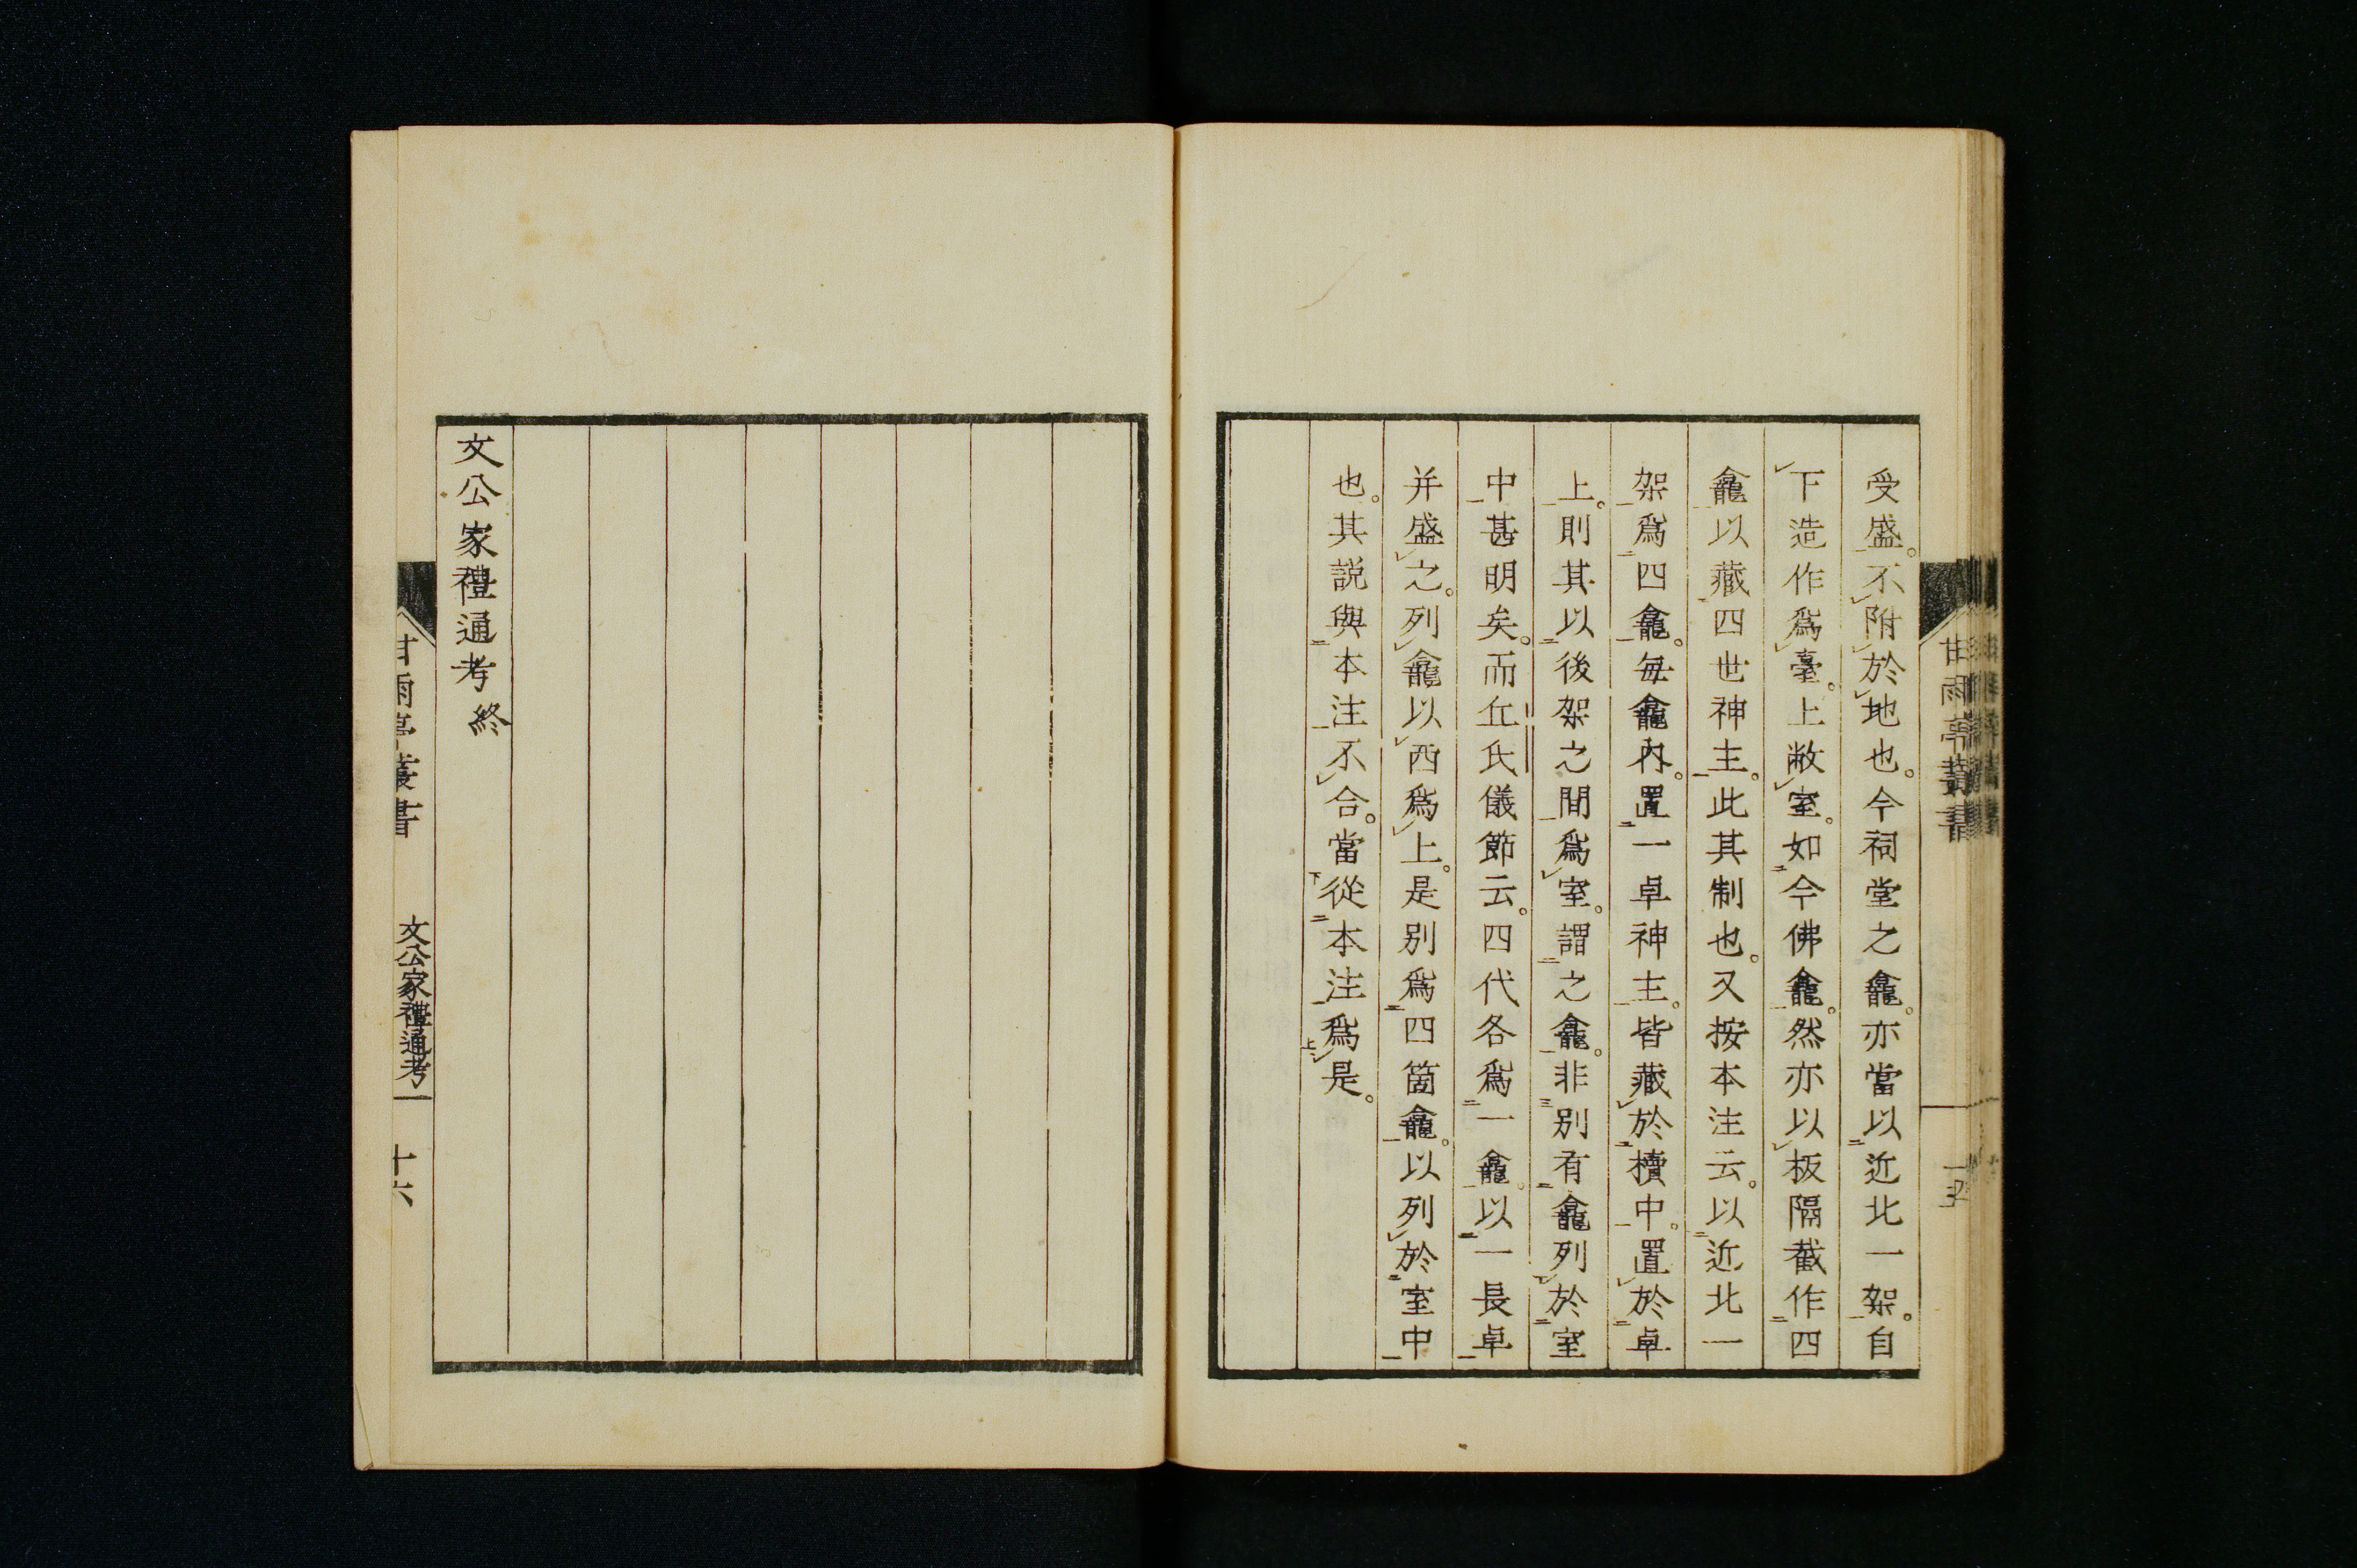 甘雨亭叢書
受盛。不附於地也。今祠堂之龕。亦當以近北一架。自
下造作爲臺。上敝室。如今佛龕。然亦以板隔截作四
龕以藏四世神主。此其制也。又按本注云。以近北一
架爲四龕。每龕內。置一卓神主。皆藏於櫝中。置於卓
上。則其以後架之間爲室。謂之龕。非別有龕列於室
中甚明矣。而丘氏儀節云。四代各爲一龕。以一長卓
并盛之。列龕以西爲上。是別爲四箇龕。以列於室中
也。其説與本注不合。當從本注爲是。
文公家禮通考終
甘雨亭叢書
文公家禮通考
十六